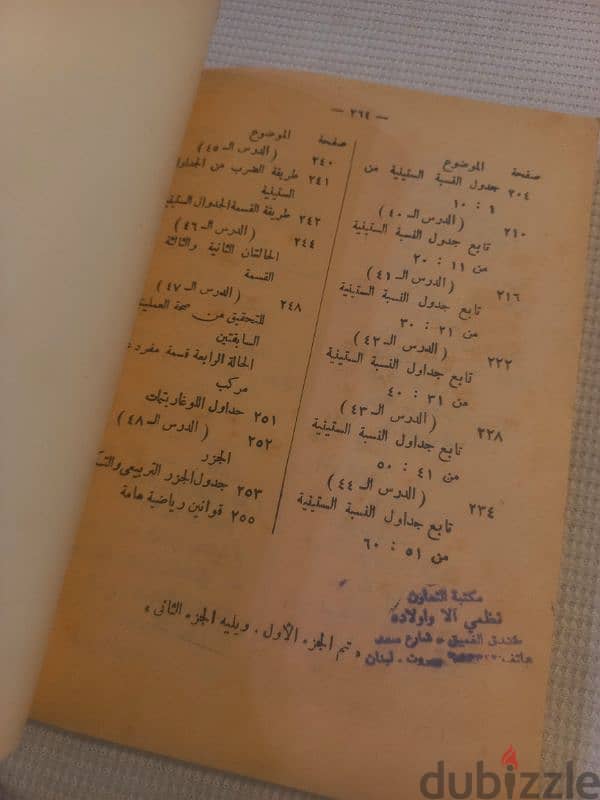 — ٢٦٤ —
صفحة الموضوع
٢٠٤ جدول النسبة الستينية من
١ : ١٠
(الدرس الـ ٤٠)
٢١٠ تابع جدول النسبة الستينية
من ١١ : ٢٠
(الدرس الـ ٤١)
٢١٦ تابع جدول النسبة الستينية
من ٢١ : ٣٠
(الدرس الـ ٤٢)
٢٢٢ تابع جداول النسبة الستينية
من ٣١ : ٤٠
(الدرس الـ ٤٣)
٢٢٨ تابع جداول النسبة الستينية
من ٤١ : ٥٠
(الدرس الـ ٤٤)
٢٣٤ تابع جداول النسبة الستينية
من ٥١ : ٦٠
صفحة الموضوع
٢٤٠ (الدرس الـ ٤٥)
٢٤١ طريقة الضرب من الجداول
الستينية
٢٤٢ طريقة القسمة الجدوال الستينية
٢٤٤ (الدرس الـ ٤٦)
الحالتان الثانية والثالثة
القسمة
٢٤٨ (الدرس الـ ٤٧)
للتحقيق من صحة العمليتين
السابقتين
الحالة الرابعة قسمة مفرد
مركب
٢٥١ جداول اللوغاريتمات
٢٥٢ (الدرس الـ ٤٨)
الجزر
٢٥٣ جدول الجزر التربيعى
٢٥٥ قوانين رياضية هامة
« تم الجزء الأول . ويليه الجزء الثانى »
مكتبة التعاون
نظمي آلا واولاده
خندق الغميق - شارع سعد
هاتف بيروت - لبنان
dubizzle